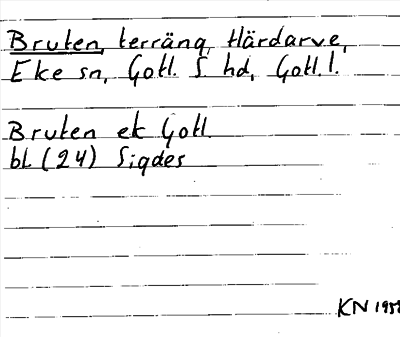 Bruten, terräng, Härdarve,
Eke sn, Gotl. S hd, Gotl. l.
Bruten ek Gotl.
bl (24) Sigdes
KN